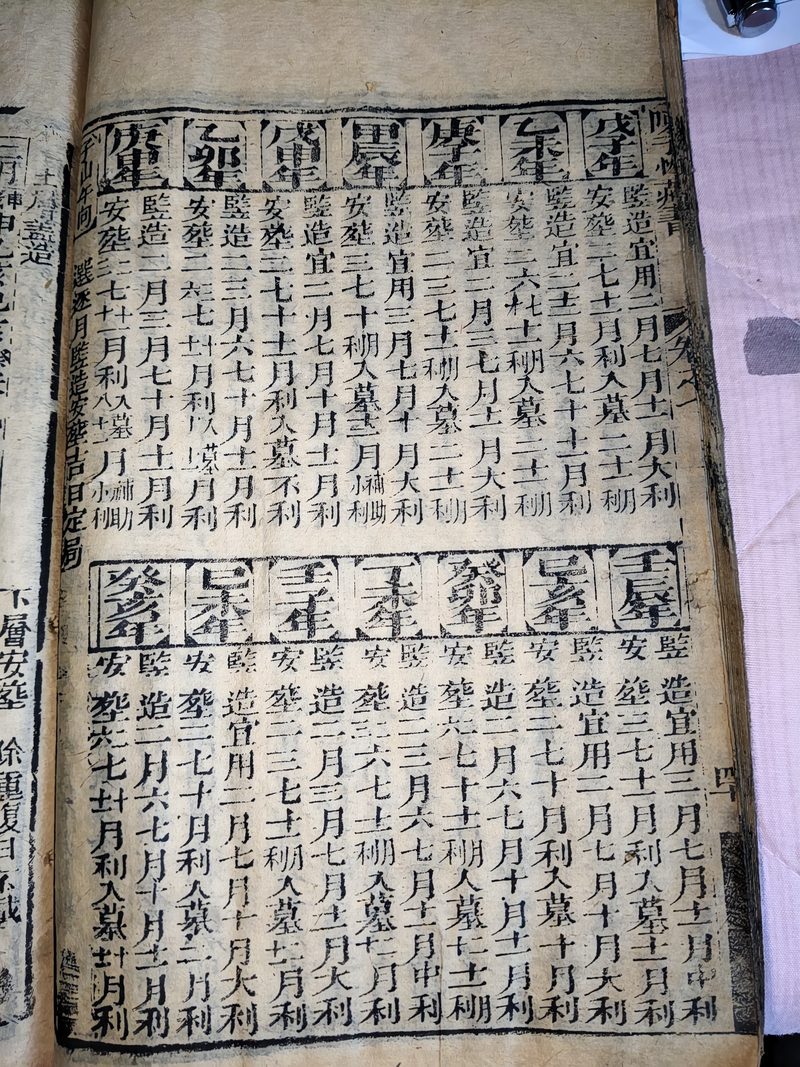 陳子性藏書
卷之
戊子年
竪造宜用二月七月十一月大利
安葬三七十一月利入墓二十一月利
乙未年
竪造宜二三月六七十十一月利
安葬三六七十一月利入墓二十一月利
庚子年
竪造宜二月三七月十一月大利
安葬二三七十一月利入墓二十一月利
甲辰年
竪造宜用三月七月十月大利
安葬三七十月利入墓十二月補助小利
戊申年
竪造宜二月七月十月十一月利
安葬三七十十一月利入墓不利
乙卯年
竪造二三月六七十月十一月利
安葬二六七十十一月利入墓月利
庚申年
竪造二月三月七十月十一月利
安葬三七十十一月利入墓月補助小利
壬辰年
竪造宜用三月七月十一月中利
安葬三七十一月利入墓十一月利
己亥年
竪造宜用二月七月十月大利
安葬二三七十月利入墓十月利
癸卯年
竪造二月六七月十月十一月利
安葬六七十十一月利入墓七十一月利
丁未年
竪造二三月六七月十一月中利
安葬三六七十一月利入墓十二月利
壬子年
竪造二月三月七月十一月大利
安葬二三七十一月利入墓十二月利
己未年
竪造宜用二月七月十月大利
安葬三七十月利入墓二月利
癸亥年
竪造二月六七月十月十一月利
安葬六七十十一月利入墓十十一月利
子山午向
選逐月竪造安葬吉日定局
上層蓋造
下層安葬
除重復日不載